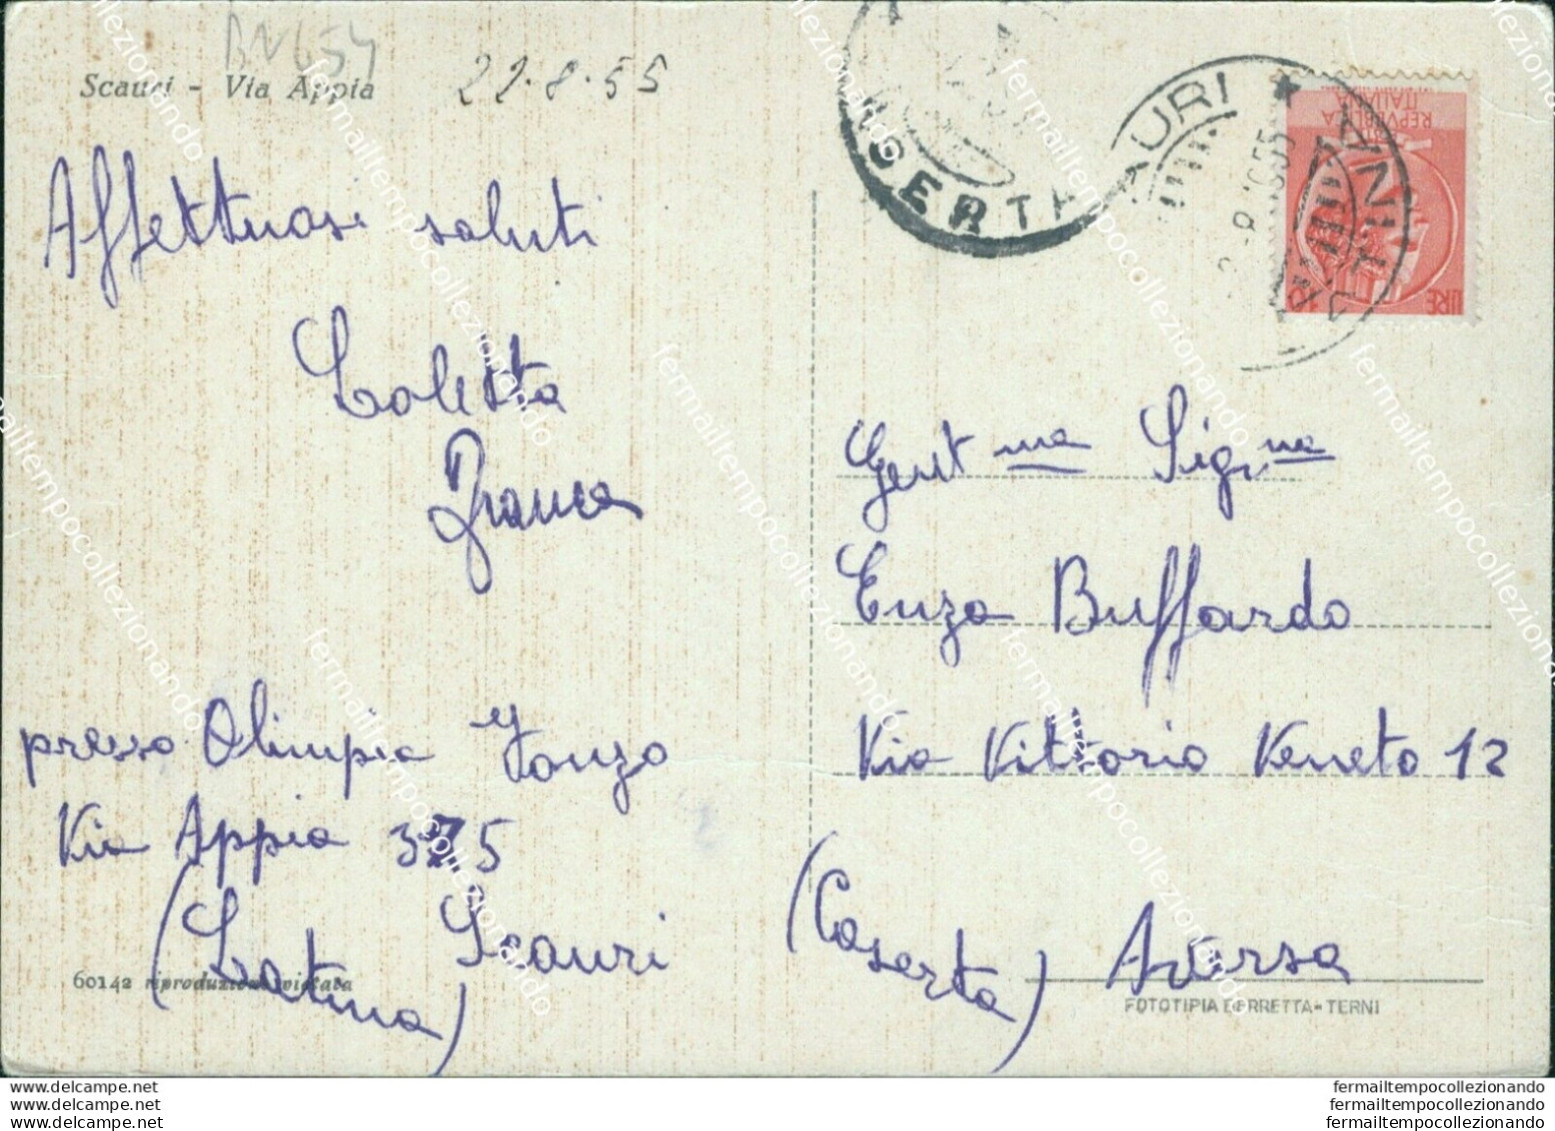 BN654
Scauri - Via Appia
22-8-55
Affettuosi saluti
Coletta
Franca
presso Olimpia Ionzo
Via Appia 375
Scauri
(Latina)
60142 riproduzione vietata
CASERTA
SCAURI
LATINA
8.1955
REPVBBLICA
ITALIANA
LIRE 10
Gent ma Sig.na
Enza Buffardo
Via Vittorio Veneto 12
(Caserta) Aversa
FOTOTIPIA BERRETTA - TERNI
www.delcampe.net
www.delcampe.net
www.delcampe.net
fermailtempocollezionando
fermailtempocollezionando
fermailtempocollezionando